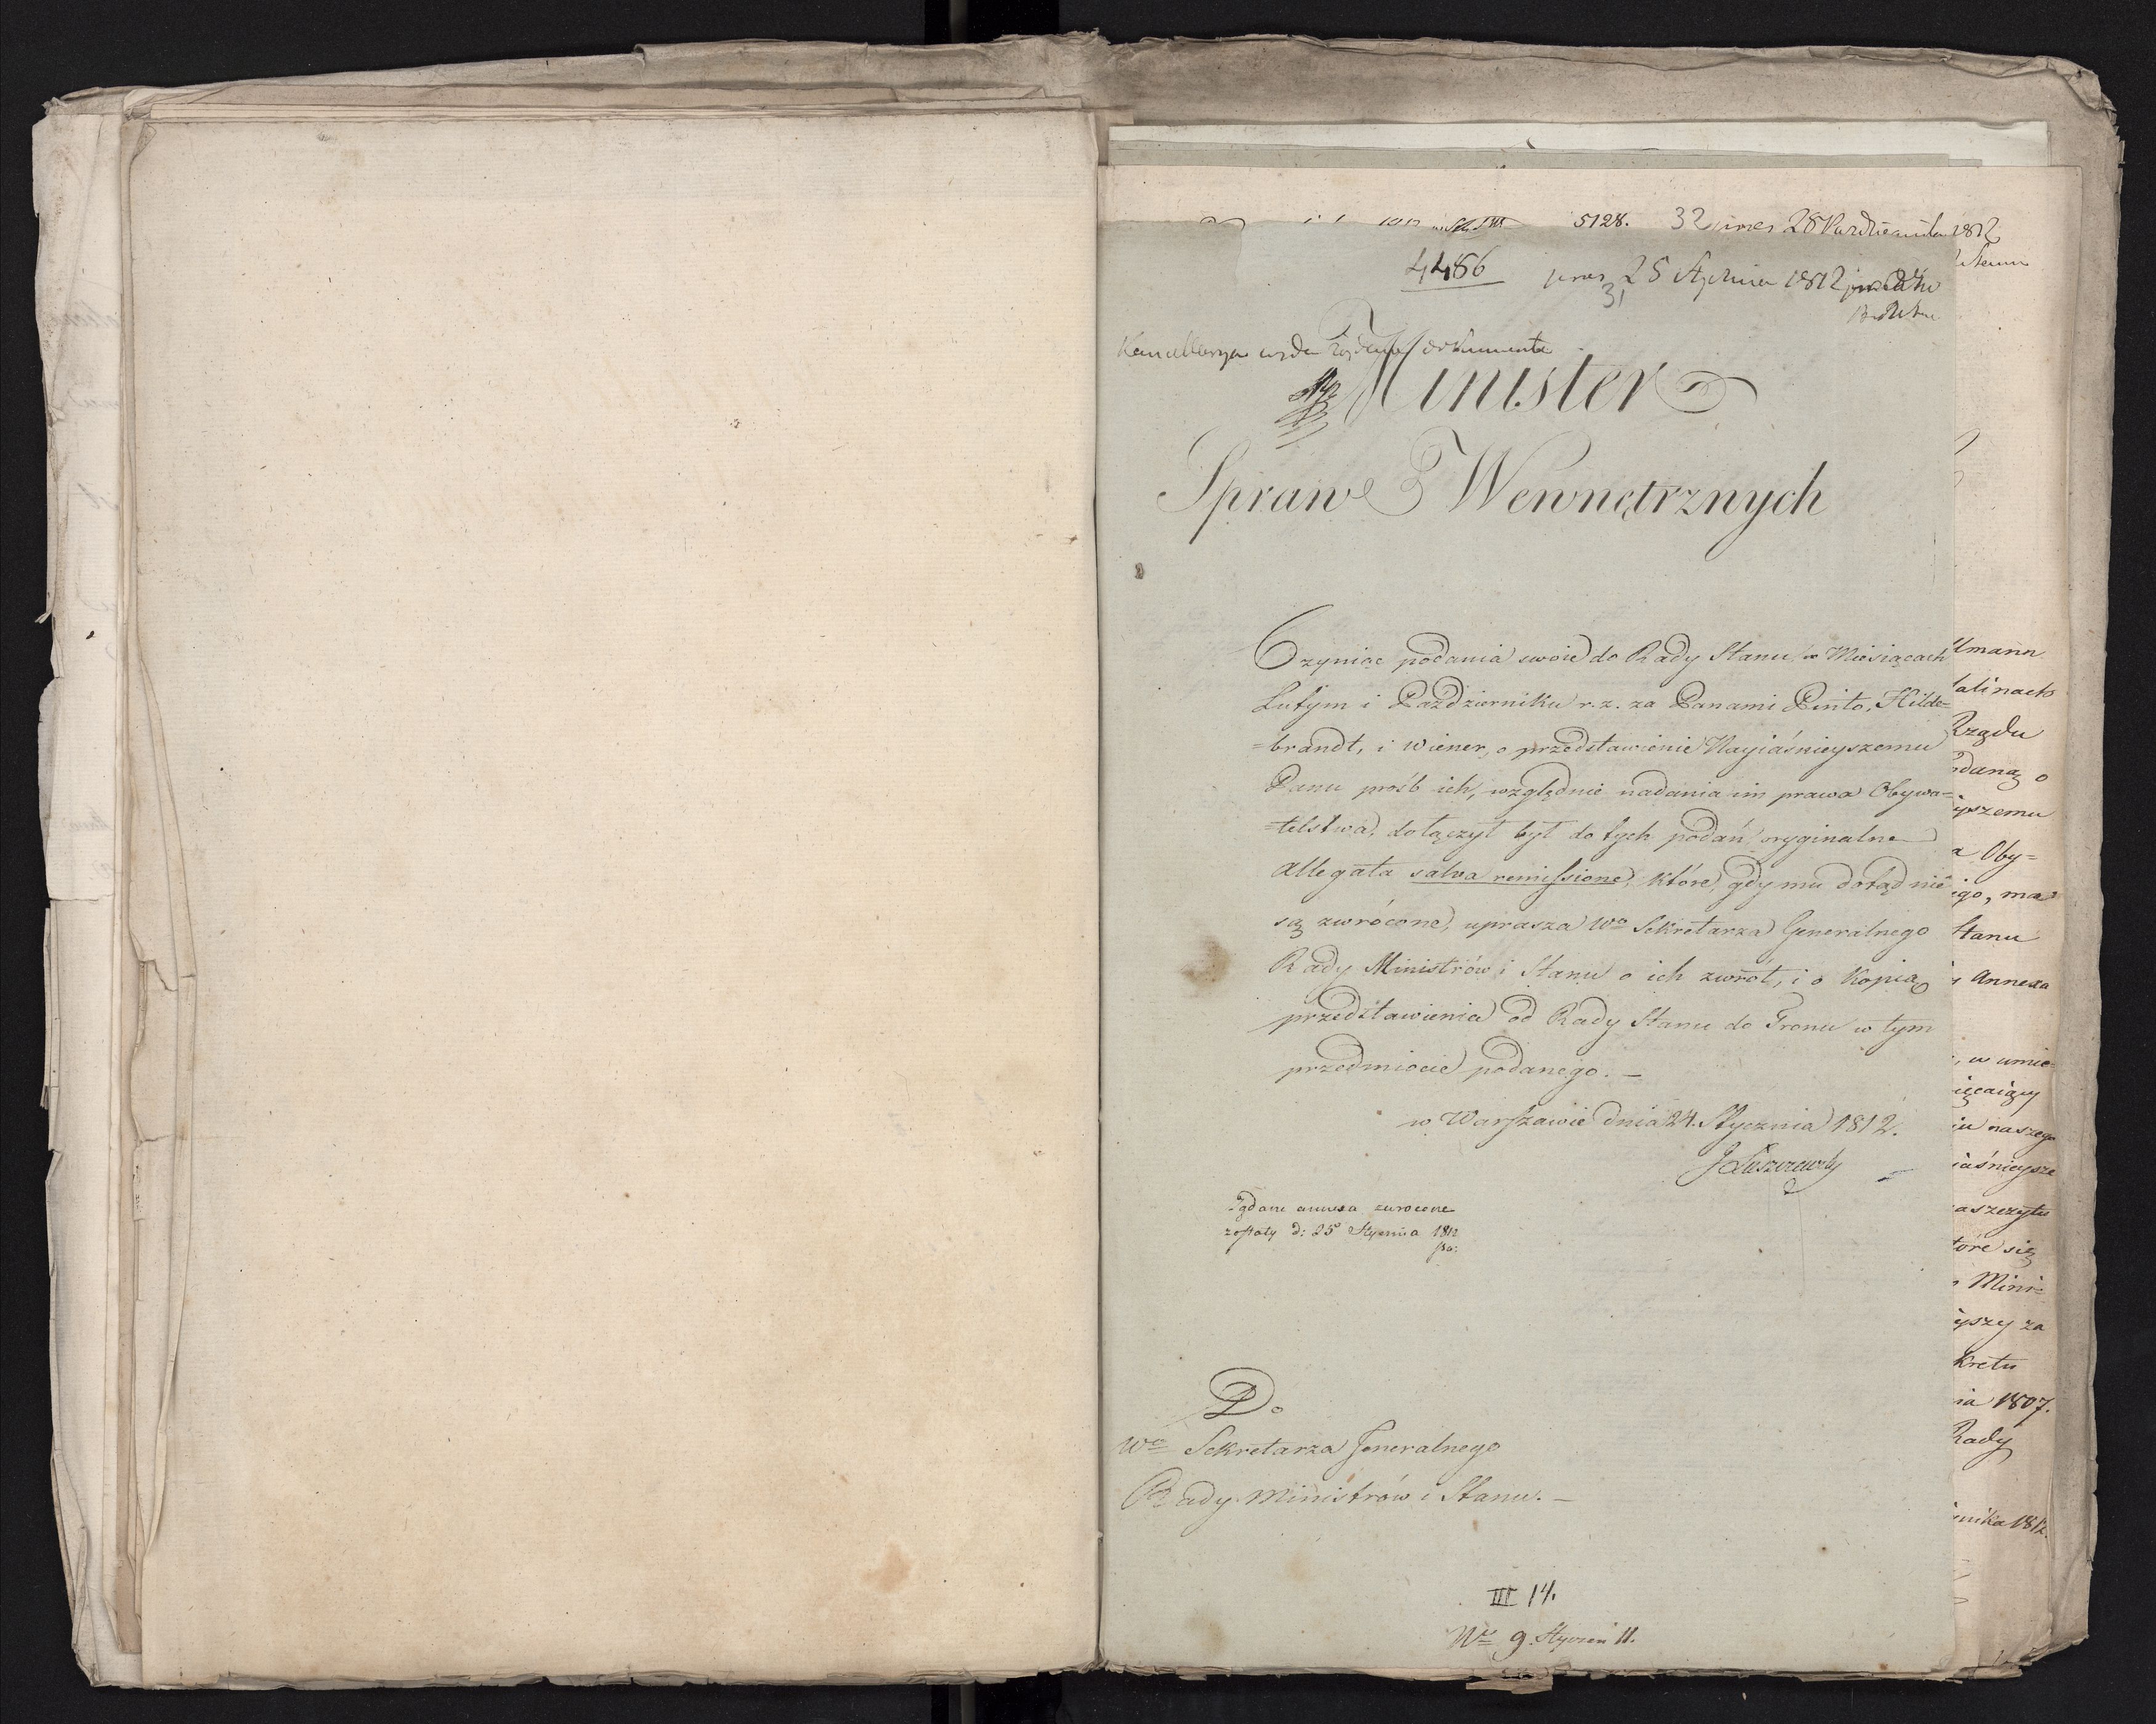 5128. 32 pres 28 Października 1812
4486 pres 25 Stycznia 1812
31
Kancellarya wyda żądane dokumenta
Minister
Spraw Wewnętrznych
Czyniąc podania swoie do Rady Stanu w Miesiącach
Lutym i Październiku r. z. za Panami Pinto, Hilde=
=brandt, i Wiener, o przedstawienie Nayiaśnieyszemu
Panu prośb ich, względnie nadania im prawa Obywa=
=telstwa, dołączył był do tych podań oryginalne
allegata salva remissione, które, gdy mu dotąd nie
są zwrócone, uprasza Wo Sekretarza Generalnego
Rady Ministrów i Stanu o ich zwrót, i o Kopią
przedstawienia od Rady Stanu do Tronu w tym
przedmiocie podanego. —
w Warszawie dnia 24. Stycznia 1812.
J Łuszczewski
Żądane annexa zwrocone
zostały d: 25 Stycznia 1812
Do
Wo Sekretarza Generalnego
Rady Ministrów i Stanu. —
III 14.
9. Styczeń 11.
łmann
alinach
Rządu
daną o
yszemu
a Oby=
igo, ma
Stanu
y Annexa
, w umie=
ięcaiący
iu naszego
iaśnieysze
aszczytu
tóre się
Mini=
yszy za
kretu
nia 1807.
Rady
nika 1812.